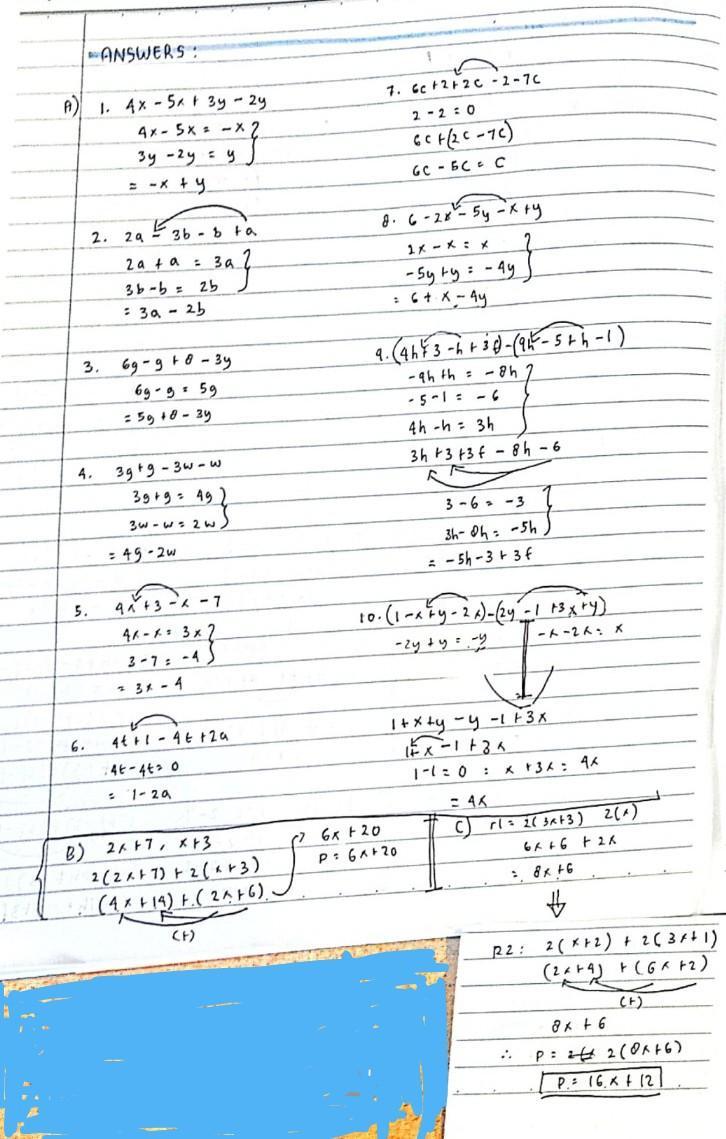 ANSWERS :
A) 1. 4x - 5x + 3y - 2y
4x - 5x = -x
3y - 2y = y
= -x + y
2. 2a - 3b - b + a
2a + a = 3a
3b - b = 2b
= 3a - 2b
3. 6g - g + 8 - 3y
6g - g = 5g
= 5g + 8 - 3y
4. 3g + g - 3w - w
3g + g = 4g
3w - w = 2w
= 4g - 2w
5. 4x + 3 - x - 7
4x - x = 3x
3 - 7 = -4
= 3x - 4
6. 4t + 1 - 4t + 2a
4t - 4t = 0
= 1 - 2a
7. 6c + 2 + 2c - 2 - 7c
2 - 2 = 0
6c + (2c - 7c)
6c - 5c = c
8. 6 - 2x - 5y - x + y
2x - x = x
-5y + y = -4y
= 6 + x - 4y
9. (4h + 3 - h + 3f) - (9h - 5 + h - 1)
-9h + h = -8h
-5 - 1 = -6
4h - h = 3h
3h + 3 + 3f - 8h - 6
3 - 6 = -3
3h - 8h = -5h
= -5h - 3 + 3f
10. (1 - x + y - 2x) - (2y - 1 + 3x + y)
-2y + y = -y
-x - 2x = x
1 + x + y - y - 1 + 3x
1 + x - 1 + 3x
1 - 1 = 0 : x + 3x = 4x
= 4x
B) 2x + 7, x + 3
2(2x + 7) + 2(x + 3)
(4x + 14) + (2x + 6)
(+)
6x + 20
P = 6x + 20
C) r1 = 2(3x+3) 2(x)
6x + 6 + 2x
= 8x + 6
R2: 2(x+2) + 2(3x+1)
(2x+4) + (6x+2)
(+)
8x + 6
∴ P = 2(8x+6)
P = 16x + 12